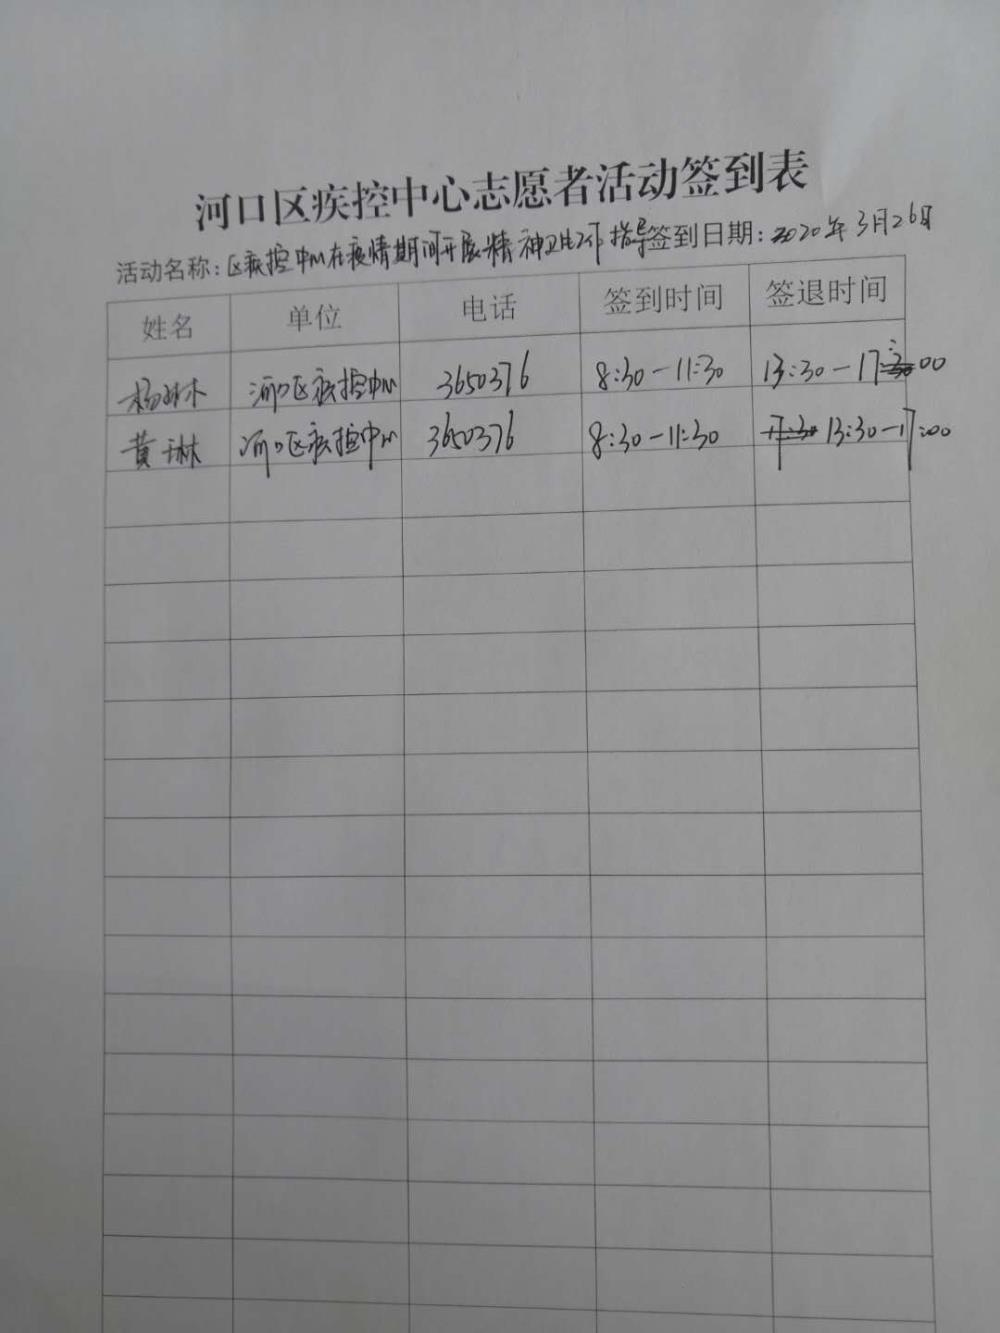 河口区疾控中心志愿者活动签到表
活动名称：区疾控中心在疫情期间开展精神卫生工作指导签到日期：2020年3月26日
姓名 单位 电话 签到时间 签退时间
杨琳 河口区疾控中心 3650376 8:30-11:30 13:30-17:00
黄琳 河口区疾控中心 3650376 8:30-11:30 13:30-17:00